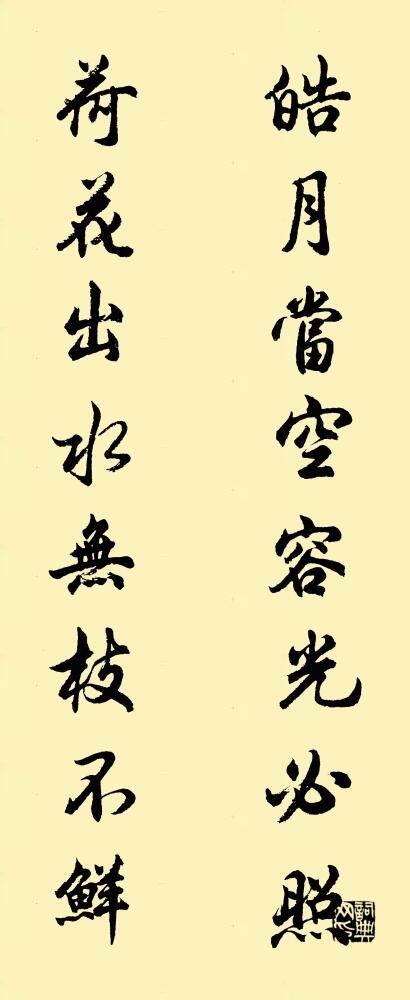 皓月當空容光必照
荷花出水無枝不鮮